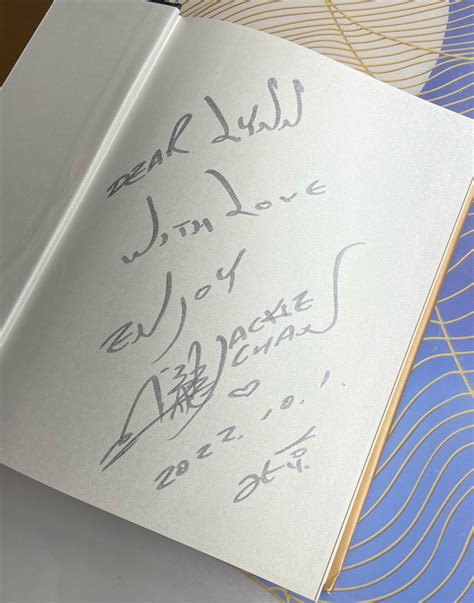 DEAR LYNN
WITH LOVE
ENJOY
JACKIE
CHAN
2022.10.1.
北京